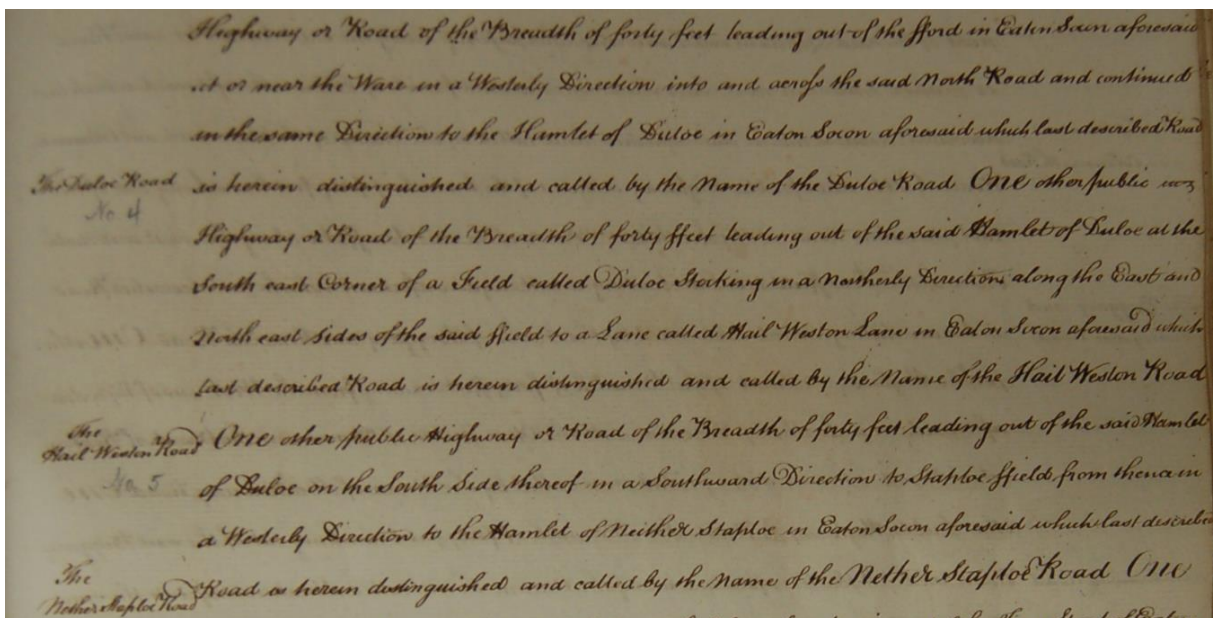 Highway or Road of the Breadth of forty feet leading out of the fford in Eaton Socon aforesaid
at or near the Ware in a Westerly Direction into and across the said North Road and continued
in the same Direction to the Hamlet of Duloe in Eaton Socon aforesaid which last described Road
The Duloe Road is herein distinguished and called by the Name of the Duloe Road One other public
No 4
Highway or Road of the Breadth of forty ffeet leading out of the said Hamlet of Duloe at the
South east Corner of a Field called Duloe Stocking in a Northerly Direction along the East and
North east Sides of the said ffield to a Lane called Hail Weston Lane in Eaton Socon aforesaid which
last described Road is herein distinguished and called by the Name of the Hail Weston Road
The
Hail Weston Road One other public Highway or Road of the Breadth of forty feet leading out of the said Hamlet
No 5
of Duloe on the South Side thereof in a Southward Direction to Staploe ffield from thence in
a Westerly Direction to the Hamlet of Neither Staploe in Eaton Socon aforesaid which last described
The
Nether Staploe Road Road is herein distinguished and called by the Name of the Nether Staploe Road One